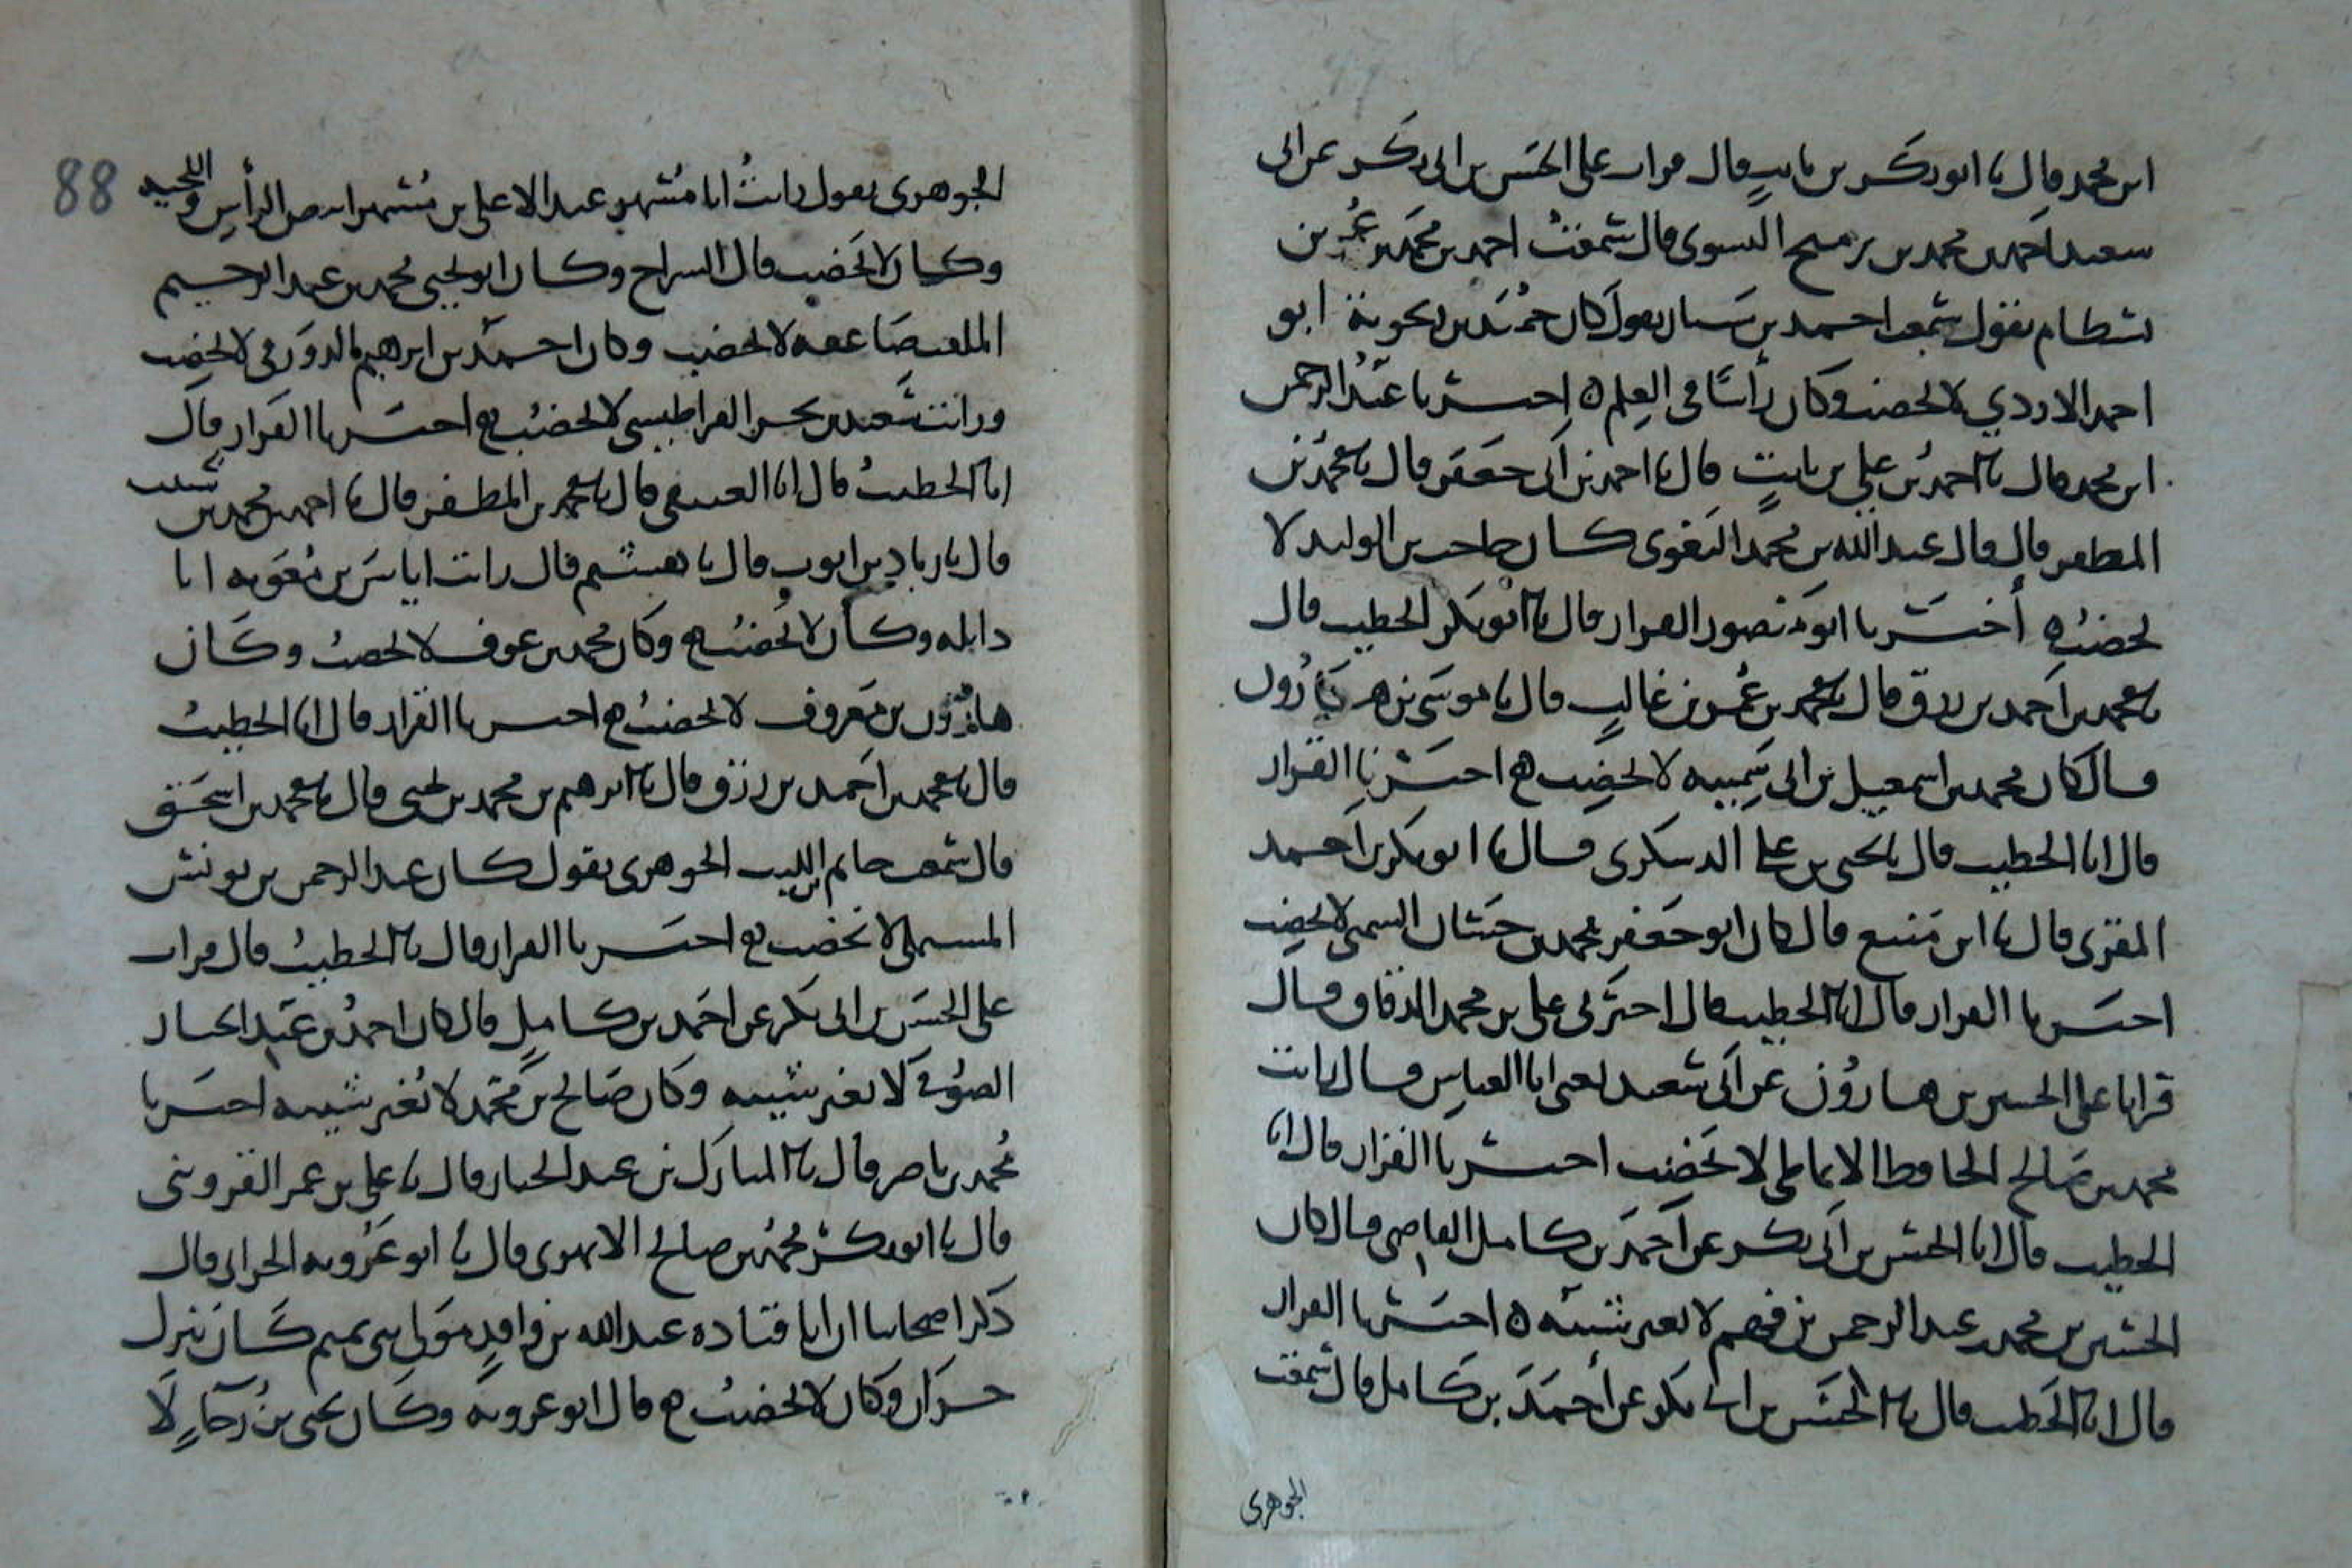 ابن محمد قال نا ابو بكر بن ثابت قال قرات على الحسن بن ابي بكر عن ابي
سعيد احمد بن محمد بن رميح النسوي قال سمعت احمد بن محمد بن عمر بن
بسطام يقول سمعت احمد بن سيار يقول كان حميد بن زنجوية ابو
احمد الازدي لا يخضب وكان رأسًا في العلم ه اخبرنا عبد الرحمن
ابن محمد قال نا احمد بن علي بن ثابت قال نا احمد بن ابي جعفر قال نا محمد بن
المظفر قال قال عبد الله بن محمد البغوي كان حاجب بن الوليد لا
يخضب ه أخبرنا ابو منصور القزاز قال نا ابو بكر الخطيب قال
نا محمد بن احمد بن رزق قال نا محمد بن عمر بن غالب قال نا موسى بن هارون
قال كان محمد بن اسمعيل بن ابي سمينه لا يخضب ه اخبرنا القزاز
قال انا الخطيب قال نا يحيى بن علي الدسكري قال نا ابو بكر بن احمد
المقرئ قال نا ابن منيع قال كان ابو جعفر محمد بن حسان السمتي لا يخضب
اخبرنا القزاز قال انا الخطيب قال اخبرني علي بن محمد الدقاق قال
قرانا على الحسين بن هارون عن ابن سعيد يعني ابا العباس قال رايت
محمد بن صالح الحافظ الانماطي لا يخضب اخبرنا القزاز قال انا
الخطيب قال انا الحسن بن ابي بكر عن احمد بن كامل القاضي قال كان
الحسين بن محمد بن عبد الرحمن بن فهم لا يغير شيبه ه اخبرنا القزاز
قال انا الخطيب قال نا الحسن بن ابي بكر عن أحمد بن كامل قال سمعت
الجوهري
88
الجوهري يقول رايت ابا مسهر عبد الاعلى بن مسهر ابيض الرأس واللحيه
وكان لا يخضب قال السراج وكان ابو يحيى محمد بن عبد الرحيم
الملقب صاعقه لا يخضب وكان احمد بن ابرهيم الدورقي لا يخضب
ورايت سعيد بن بحر القراطيسي لا يخضب ه اخبرنا القزاز قال
انا الخطيب قال انا العتيقي قال نا محمد بن المظفر قال نا احمد بن محمد بن شبيب
قال نا زياد بن ايوب قال نا هشيم قال رايت اياس بن معويه ابا
واثله وكان لا يخضب ه وكان محمد بن عوف لا يخضب وكان
هارون بن معروف لا يخضب ه اخبرنا القزاز قال انا الخطيب
قال نا محمد بن احمد بن رزق قال نا ابرهيم بن محمد بن يحيى قال نا محمد بن اسحق
قال سمعت حاتم بن الليث الجوهري يقول كان عبد الرحمن بن يونس
المستملي لا يخضب ه اخبرنا القزاز قال نا الخطيب قال قرات
على الحسن بن ابي بكر عن احمد بن كامل قال كان احمد بن عبد الجبار
الصوفي لا يغير شيبه وكان صالح بن محمد لا يغير شيبه اخبرنا
محمد بن ناصر قال نا المبارك بن عبد الجبار قال نا علي بن عمر القزويني
قال نا ابو بكر محمد بن صالح الابهري قال نا ابو عروبه الحراني قال
ذكر اصحابنا ان ابا قتاده عبد الله بن واقد مولى بني تميم كان ينزل
حران وكان لا يخضب ه قال ابو عروبه وكان يحيى بن رجاء لا